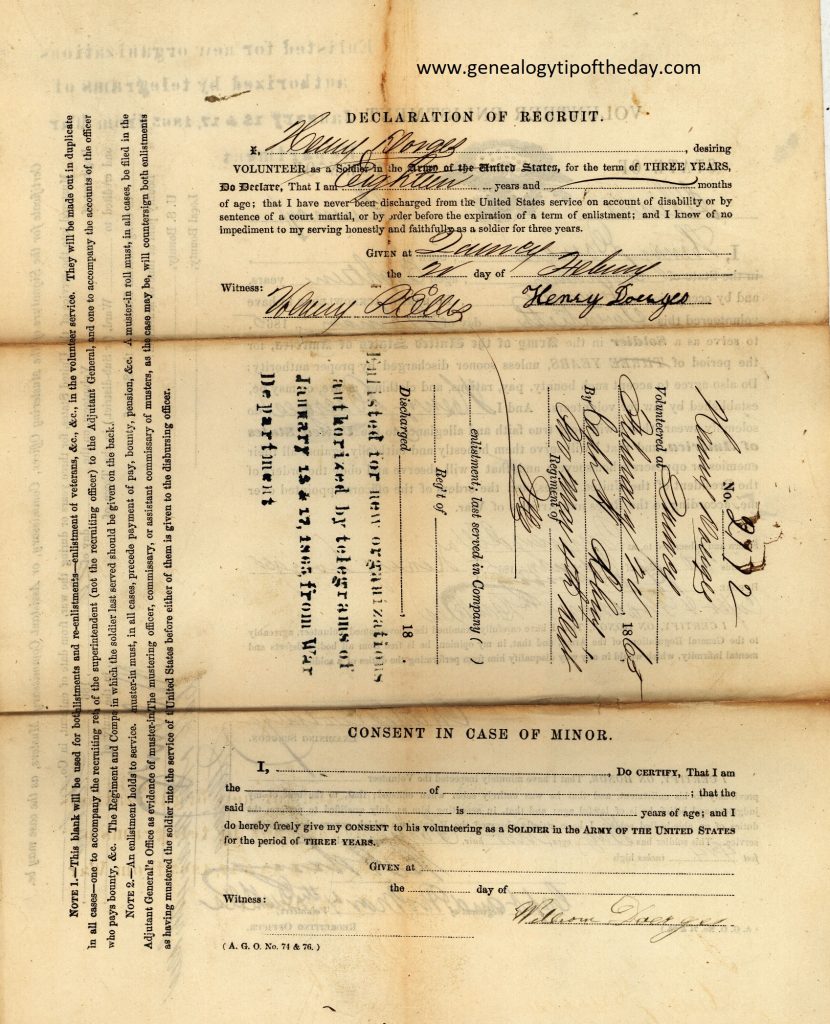 www.genealogytipoftheday.com
DECLARATION OF RECRUIT.
I, Henry Dorges, desiring
VOLUNTEER as a Soldier in the Army of the United States, for the term of THREE YEARS,
Do Declare, That I am Eighteen years and months
of age; that I have never been discharged from the United States service on account of disability or by
sentence of a court martial, or by order before the expiration of a term of enlistment; and I know of no
impediment to my serving honestly and faithfully as a soldier for three years.
GIVEN at Quincy
the day of
Witness:
Henry Doerges
No.
Volunteered at Quincy
February 20, 1865
By
Regiment of
Ills
enlistment; last served in Company ( )
Reg't of
Discharged , 18 .
Enlisted for new organizations
authorized by telegrams of
January 13 & 17, 1865, from War
Department
CONSENT IN CASE OF MINOR.
I, , DO CERTIFY, That I am
the of ; that the
said is years of age; and I
do hereby freely give my CONSENT to his volunteering as a SOLDIER in the ARMY OF THE UNITED STATES
for the period of THREE YEARS.
GIVEN at
the day of
Witness:
William Doerges
( A. G. O. No. 74 & 76. )
NOTE 1.—This blank will be used for both enlistments and re-enlistments—enlistment of veterans, &c., &c., in the volunteer service. They will be made out in duplicate
in all cases—one to accompany the recruiting ret of the superintendent (not the recruiting officer) to the Adjutant General, and one to accompany the accounts of the officer
who pays bounty, &c. The Regiment and Compa in which the soldier last served should be given on the back.
NOTE 2.—An enlistment holds to service. muster-in must, in all cases, precede payment of pay, bounty, pension, &c. A muster-in roll must, in all cases, be filed in the
Adjutant General's Office as evidence of muster-in. The mustering officer, commissary, or assistant commissary of musters, as the case may be, will countersign both enlistments
as having mustered the soldier into the service of United States before either of them is given to the disbursing officer.